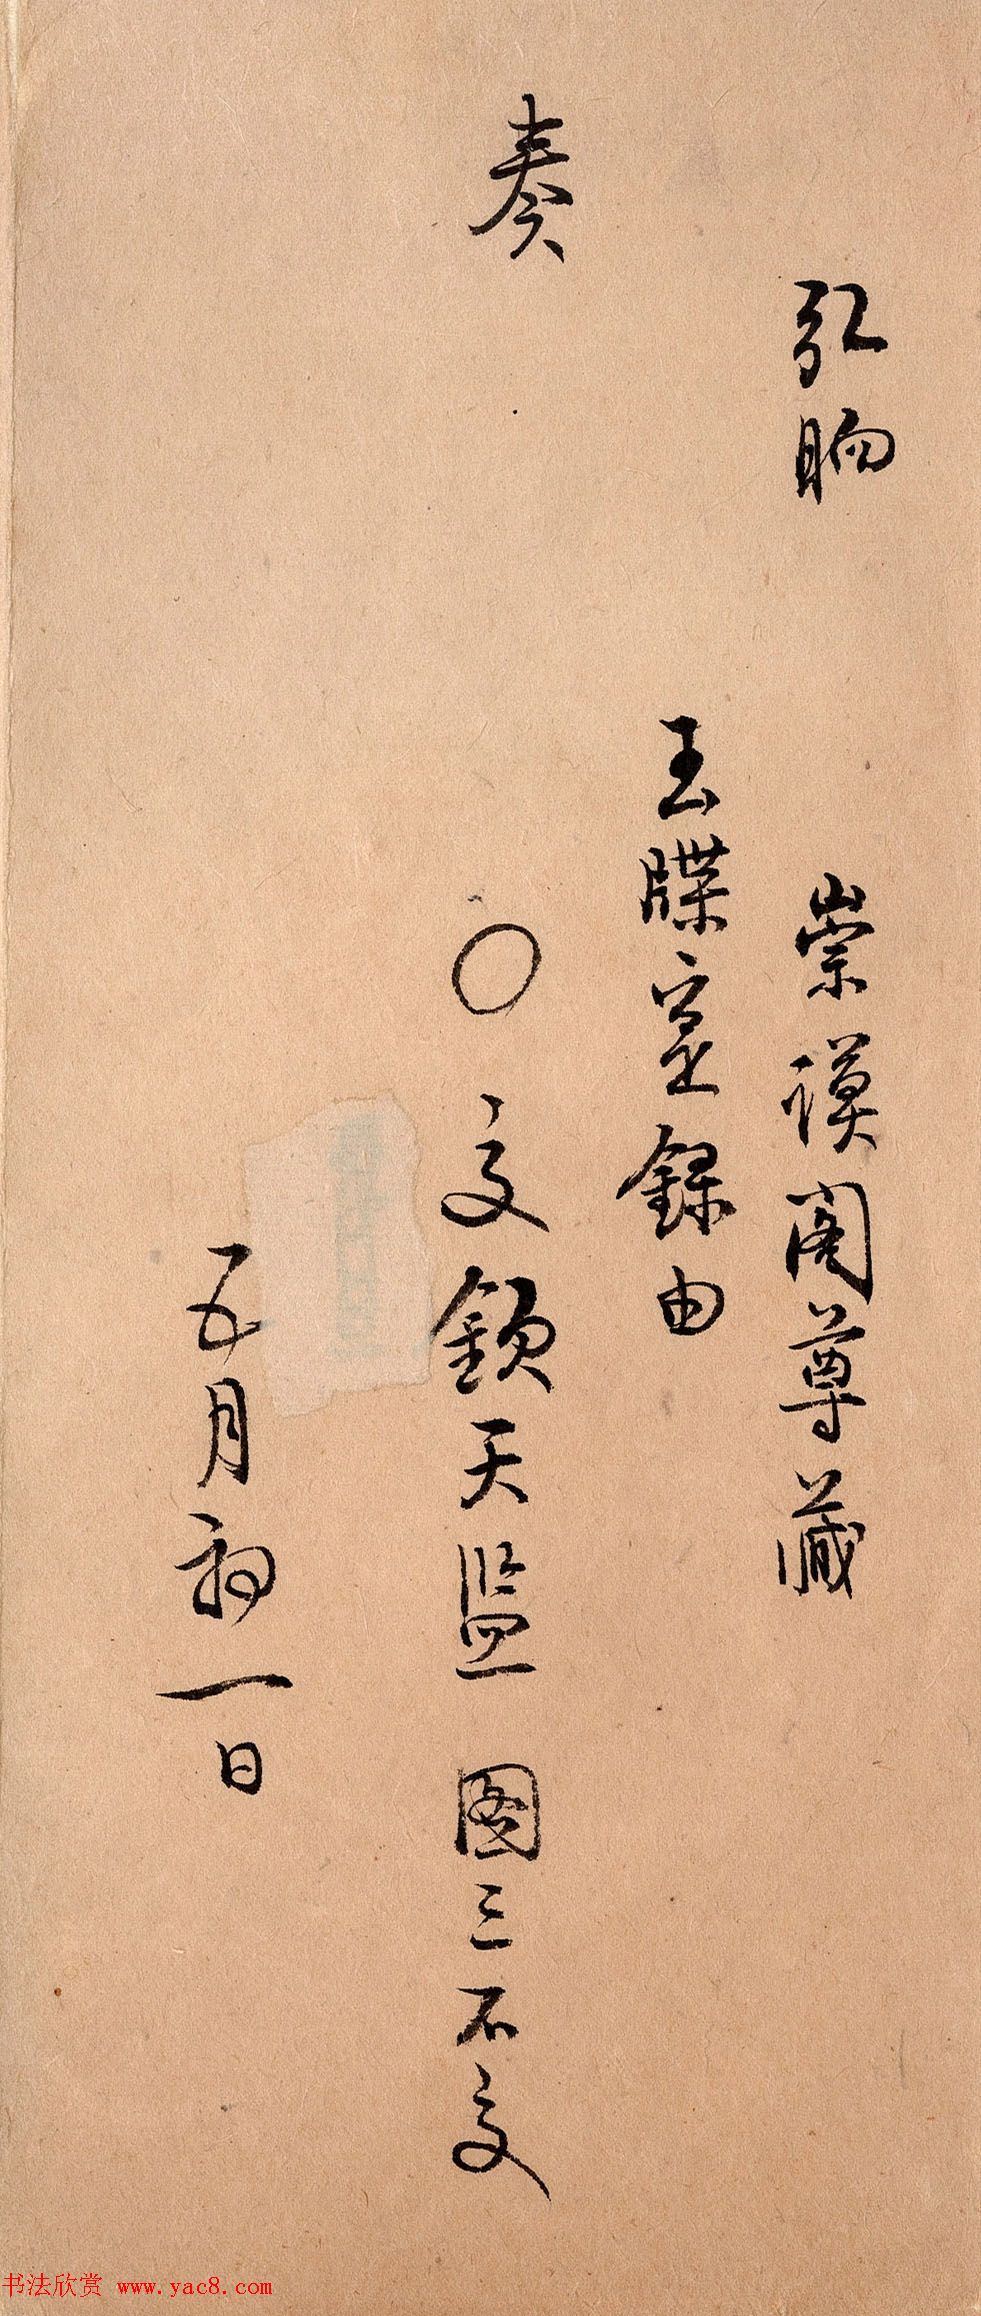 弘晌
崇謨阁尊藏
玉牒寔錄由
奏
〇交鎖天监 图三不交
五月初一日
书法欣赏 www.yac8.com